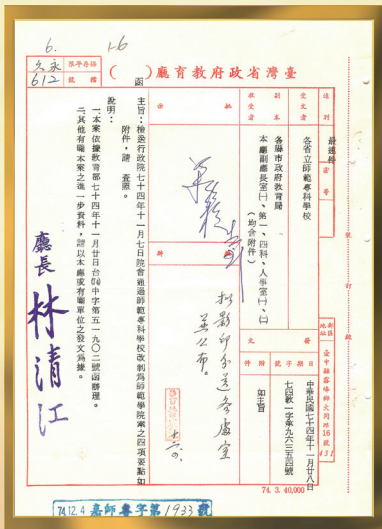 6.
1-6
保存年限
永久
檔號
612
臺灣省政府教育廳(　　)函
速別
最速件
密等
受文者
各省立師範專科學校
副本收受者
各縣市政府教育局
本廳副廳長室㈠、第一、四科、人事室㈠、㈡
(均含附件)
地址
臺中縣霧峰鄉大同路16號
431
發文
日期
中華民國七十四年十一月廿八日
字號
七四教一字第九六三五四號
附件
如主旨
批示
擬辦
擬影印分送各處室
並公布。
主旨:檢送行政院七十四年十一月七日院會通過師範專科學校改制為師範學院案之四項要點如
附件,請　查照。
說明:
一、本案依據教育部七十四年十一月廿日台㈭中字第五一九〇二號函辦理。
二、其他有關本案之進一步資料,請以本廳或有關單位之發文為據。
廳長 林清江
74. 3. 40,000
74.12.4 嘉師 字第1933號